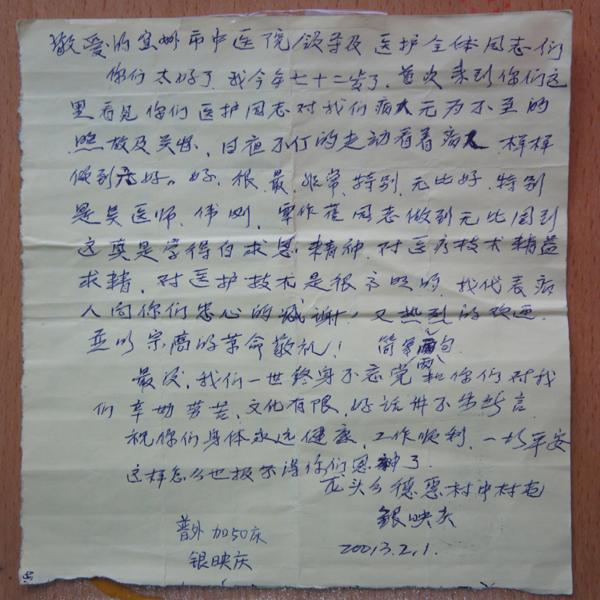 敬爱的宜州市中医院领导及医护全体同志们
你们太好了，我今年七十二岁了，首次来到你们这
里看见你们医护同志对我们病人无为不至的
照故及关怀，日夜不仃的走动看着病人，样样
做到 好。好、很、最、非常、特别、无比好，特别
是吴医师、伟 、覃作 同志做到无比周到
这真是学得白求恩精神，对医疗技术精益
求精，对医护技术是很 的，我代表病
人向你们忠心的感谢！又热烈的欢迎，
并以宗高的革命敬礼！ 简单两句
最后，我们一世终身不忘党和你们对我
们辛勤劳苦，文化有限，好话讲不 言
祝你们身体永远健康，工作顺利，一切平安
这样怎么也报不得你们恩神了。
龙头乡德恩村中村屯
银映庆
普外加50床
银映庆
20013.2.1.